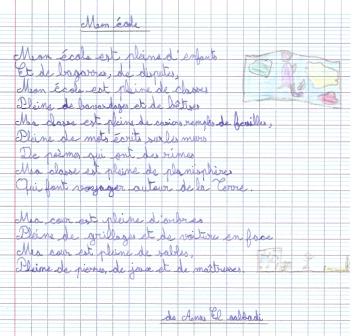 Mon école
Mon école est pleine d'enfants
Et de bagarres, de disputes,
Mon école est pleine de classes
Pleine de bavardages et de bêtises
Ma classe est pleine de casiers remplis de feuilles,
Pleine de mots écrits sur les murs
De poèmes qui ont des rimes
Ma classe est pleine de planisphères
Qui font voyager autour de la Terre.
Ma cour est pleine d'arbres
Pleine de grillages et de voiture en face
Ma cour est pleine de sables,
Pleine de pierres, de jeux et de maîtresses.
de El